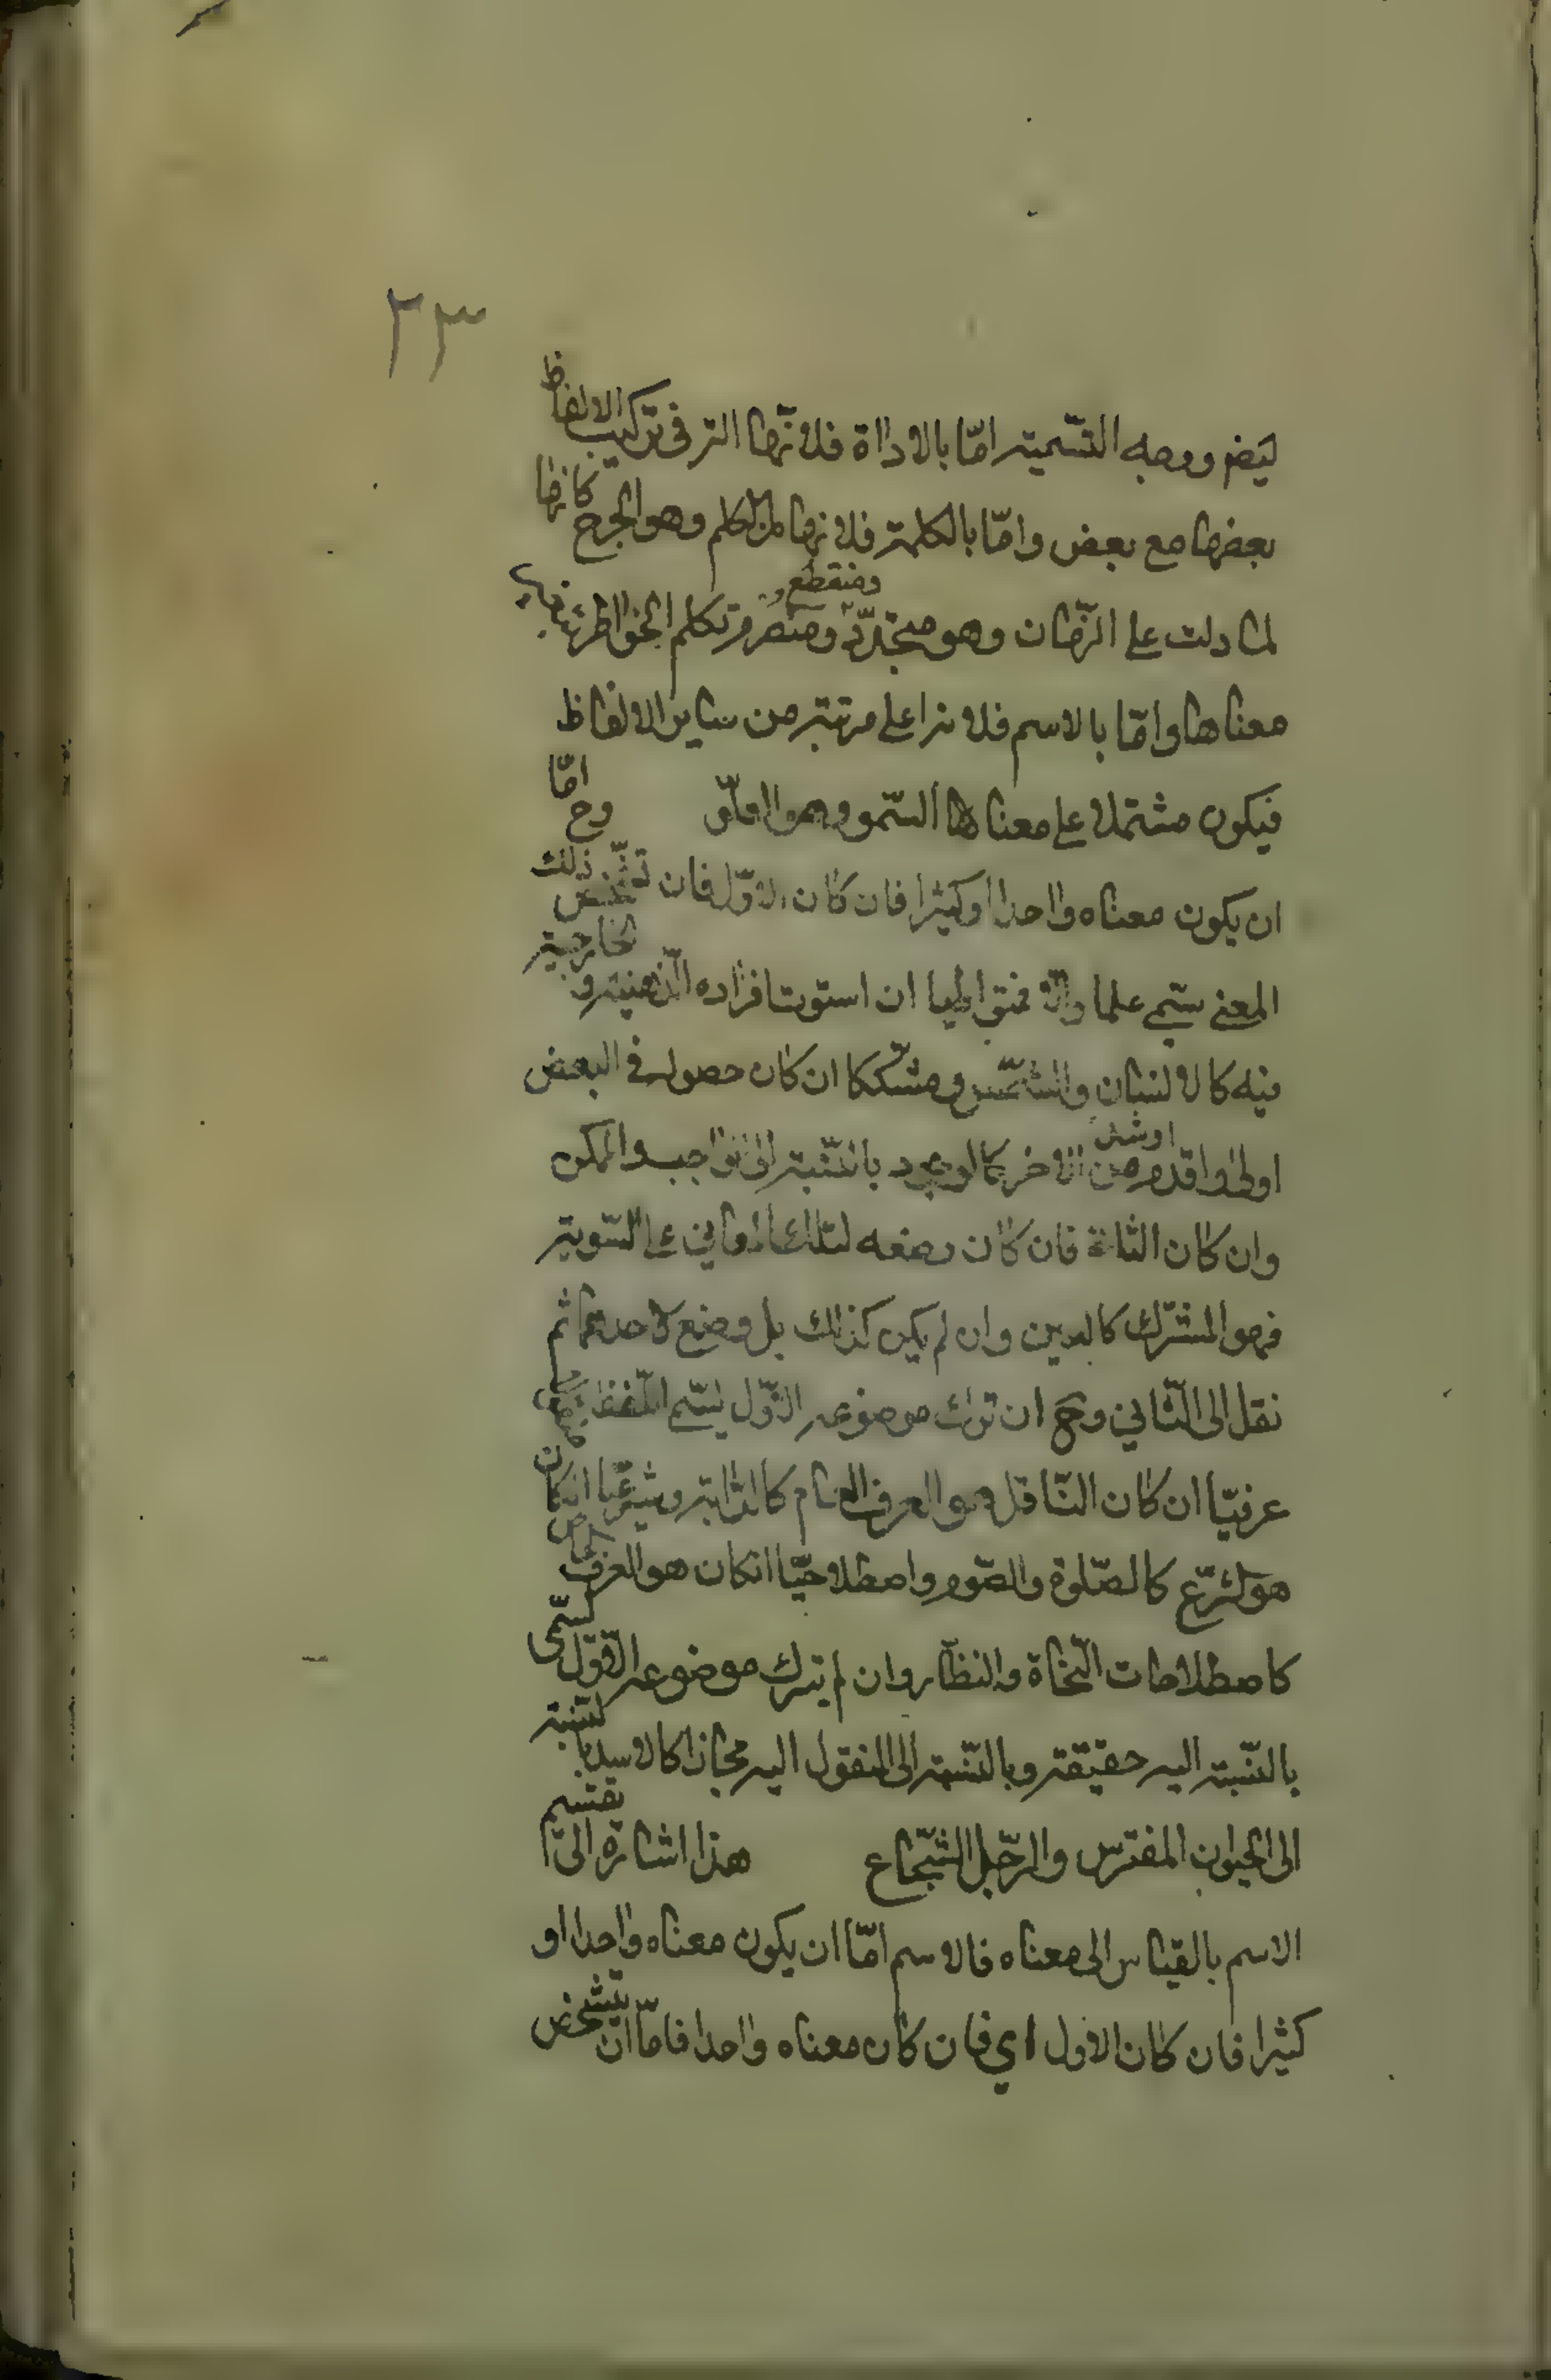 ٢٣
ليضم ووجه التّسمية امّا بالاداة فلانّها الة فى تركيب الالفاظ
بعضها مع بعض وامّا بالكلمة فلانها من الكلم وهو الجرح كانها
لما دلت على الزّمان وهو متجدّد ومتصرم تكلم الخواطر بتغير
ومنقطع
معناها وامّا بالاسم فلانه اعلى مرتبة من ساير الالفاظ
فيكون مشتملا على معنا هذا السّمو وهو العلوّ وح امّا
ان يكون معناه واحدا او كثيرا فان كان الاوّل فان تشخّص ذلك
المعنى سمّي علما والّا فمتواطيا ان استوت افراده الذّهنية والخارجية
فيه كالانسان والشّمس ومشكّكا ان كان حصوله في البعض
اولى واقدم من الاخر كالوجود بالنّسبة الى الواجب والممكن
او اشد
وان كان الثاني فان كان وضعه لتلك المعاني على السّوية
فهو المشترك كالعين وان لم يكن كذلك بل وضع لاحدهما ثم
نقل الى الثّاني وح ان ترك موضوعه الاوّل يسمّى اللّفظ
عرفيّا ان كان النّاقل هو العرف العام كالدّابة وشرعيّا انكان
هو الشّرع كالصّلوة والصّوم واصطلاحيّا انكان هو العرف الخاص
كاصطلاحات النّحاة والنظّار وان لم يترك موضوعه الاوّل يسمّى
بالنّسبة اليه حقيقة وبالنّسبة الى المنقول اليه مجازا كالاسد بالنسبة
الى الحيوان المفترس والرّجل الشّجاع هذا اشارة الى تقسيم
الاسم بالقياس الى معناه فالاسم امّا ان يكون معناه واحدا او
كثيرا فان كان الاول اي فان كان معناه واحدا فامّا ان يتشخص